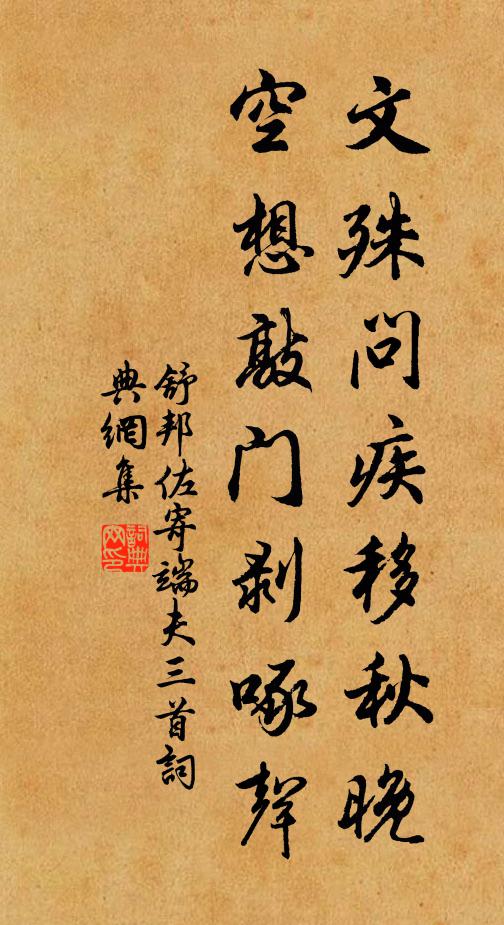 文殊问疾移秋晚
空想敲门剥啄聲
舒邦佐寄端夫三首詞
典網集
詞典网印